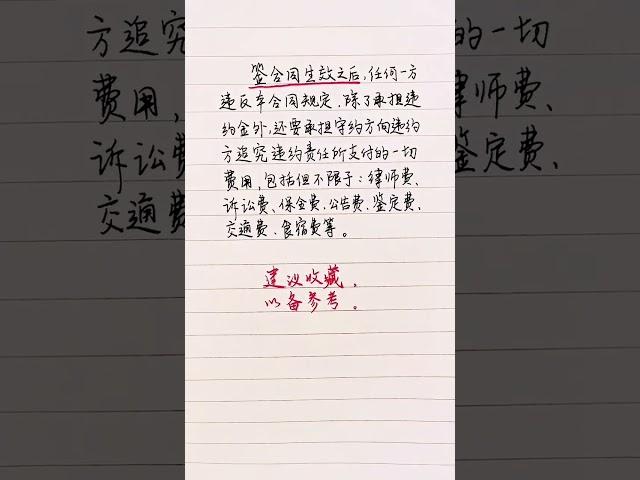 签合同生效之后,任何一方
违反本合同规定,除了承担违
约金外,还要承担守约方向违约
方追究违约责任所支付的一切
费用,包括但不限于:律师费、
诉讼费、保全费、公告费、鉴定费、
交通费、食宿费等。
建议收藏,
以备参考。
方追究
费用,
诉讼费
交通费
的一切
律师费、
鉴定费、